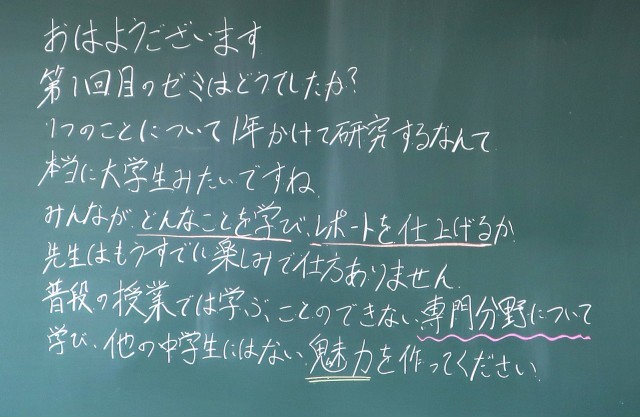 おはようございます
第1回目のゼミはどうでしたか?
1つのことについて1年かけて研究するなんて
本当に大学生みたいですね。
みんなが、どんなことを学び、レポートを仕上げるか
先生はもうすでに楽しみで仕方ありません。
普段の授業では学ぶことのできない専門分野について
学び、他の中学生にはない魅力を作ってください。